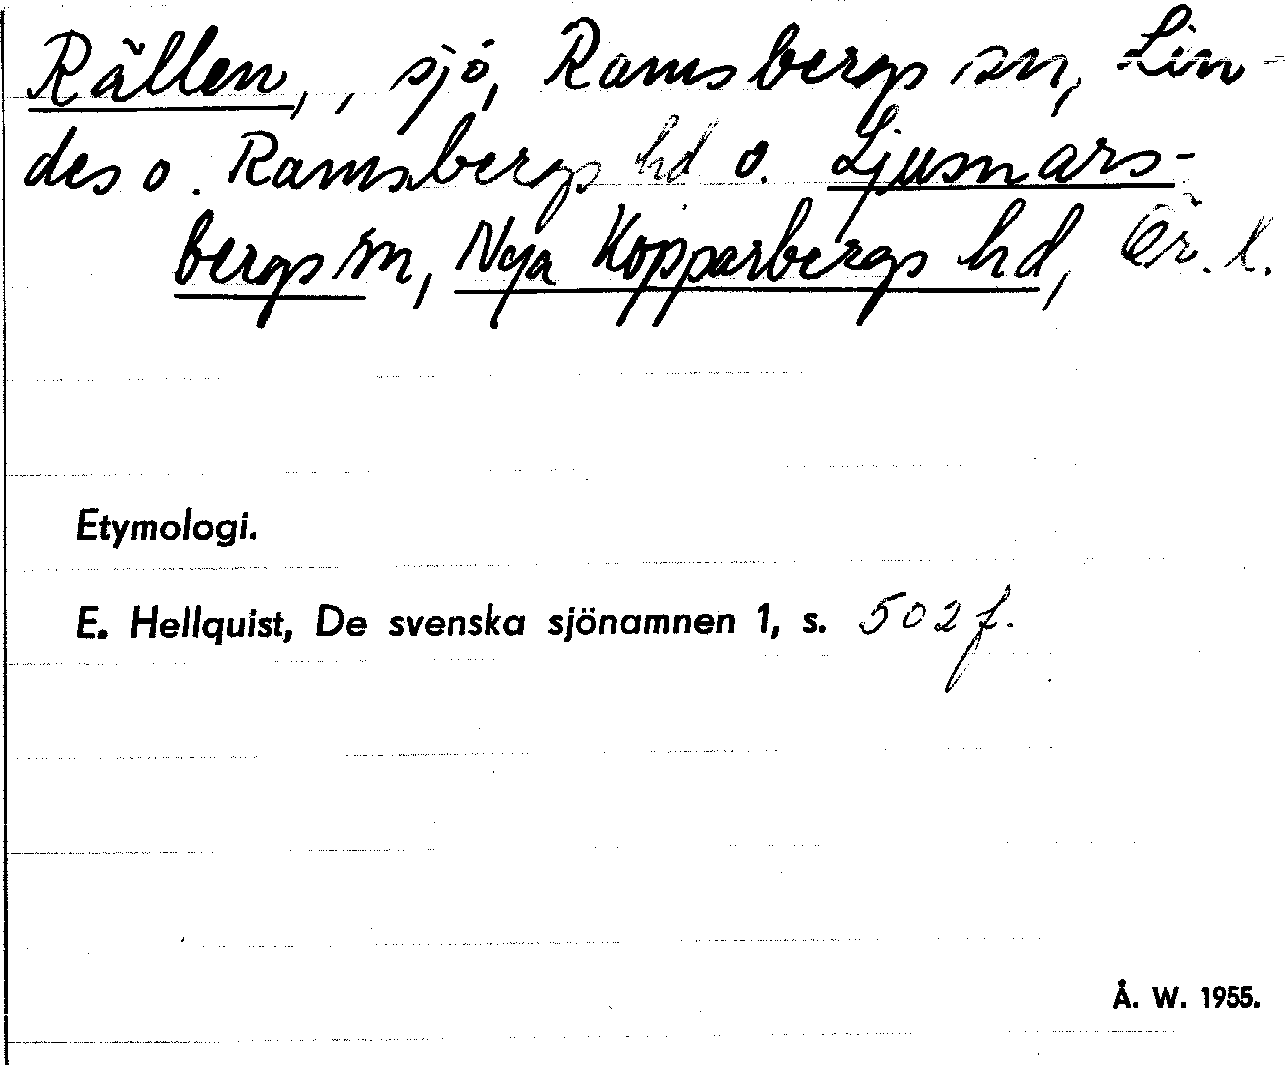 Rällen, , sjö, Ramsbergs sn, Lin-
des o. Ramsbergs hd o. Ljusnars-
bergs sn, Nya Kopparbergs hd, Ör. l.
Etymologi.
E. Hellquist, De svenska sjönamnen 1, s. 502 f.
Å. W. 1955.